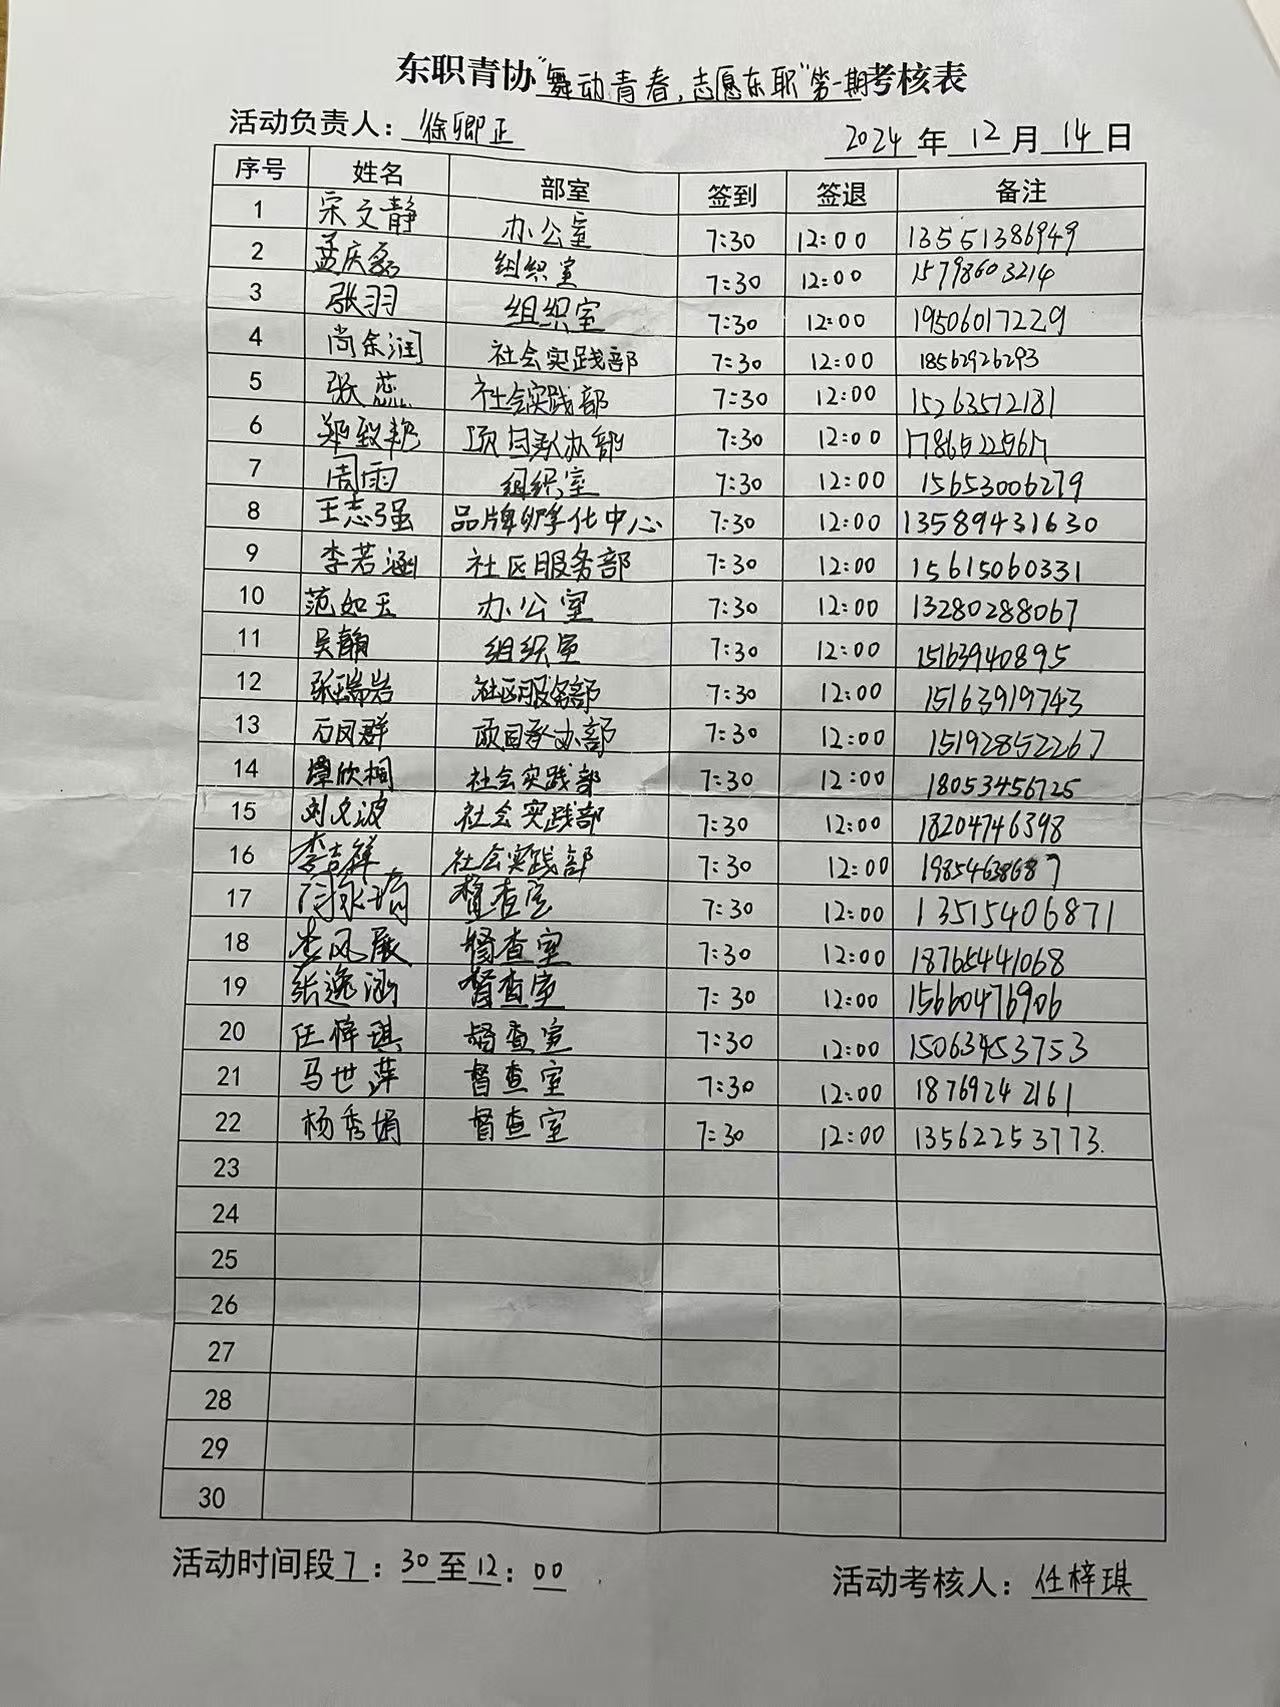 东职青协“舞动青春,志愿东职”第一期考核表
活动负责人：徐卿正 2024年12月14日
序号 姓名 部室 签到 签退 备注
1 宋文静 办公室 7:30 12:00 13551386949
2 孟庆磊 组织室 7:30 12:00 15798603214
3 张羽 组织室 7:30 12:00 19506017229
4 尚余润 社会实践部 7:30 12:00 18562926293
5 张蕊 社会实践部 7:30 12:00 15263512181
6 郑致艳 项目承办部 7:30 12:00 17865225617
7 周雨 组织室 7:30 12:00 15653006279
8 王志强 品牌孵化中心 7:30 12:00 13589431630
9 李若涵 社区服务部 7:30 12:00 15615060331
10 范如玉 办公室 7:30 12:00 13280288067
11 吴静 组织室 7:30 12:00 15163940895
12 张瑞岩 社区服务部 7:30 12:00 15163919743
13 石凤群 项目承办部 7:30 12:00 15192852267
14 欣桐 社会实践部 7:30 12:00 18053456725
15 刘文波 社会实践部 7:30 12:00 18204746398
16 李吉祥 社会实践部 7:30 12:00 19854638687
17 闫永琦 督查室 7:30 12:00 13515406871
18 李风展 督查室 7:30 12:00 18765441068
19 张逸涵 督查室 7:30 12:00 15660476906
20 任梓琪 督查室 7:30 12:00 15063453753
21 马世萍 督查室 7:30 12:00 18769242161
22 杨秀娟 督查室 7:30 12:00 13562253773.
23
24
25
26
27
28
29
30
活动时间段7：30至12：00 活动考核人：任梓琪